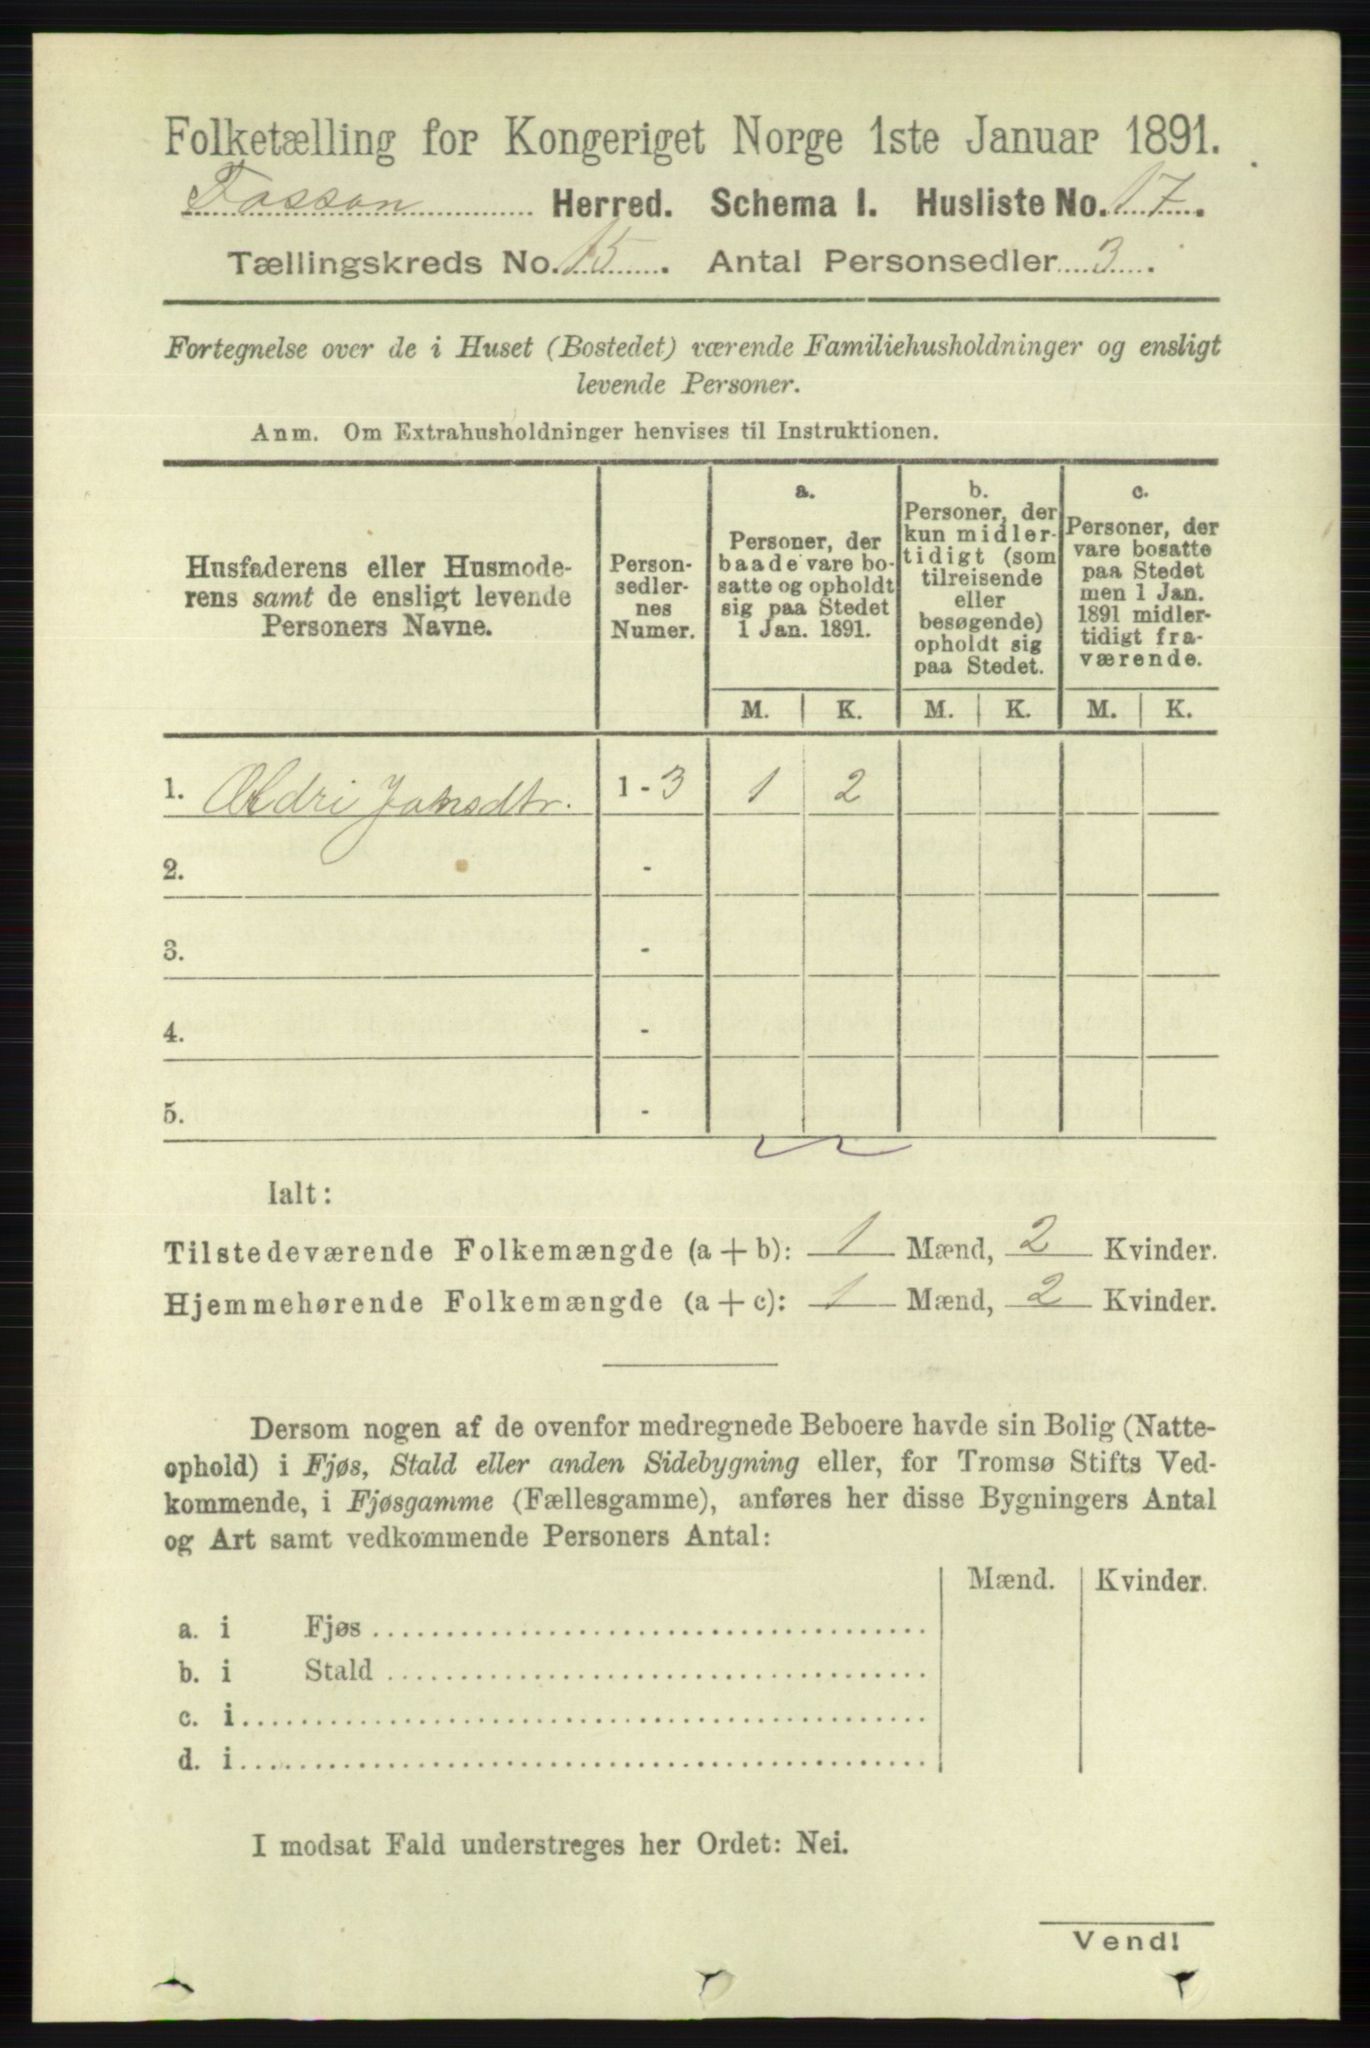 Folketælling for Kongeriget Norge 1ste Januar 1891.
Fossan Herred. Schema I. Husliste No. 17.
Tællingskreds No. 15. Antal Personsedler 3.
Fortegnelse over de i Huset (Bostedet) værende Familiehusholdninger og ensligt
levende Personer.
Anm. Om Extrahusholdninger henvises til Instruktionen.
Husfaderens eller Husmode-
rens samt de ensligt levende
Personers Navne.
Person-
sedler-
nes
Numer.
a.
Personer, der
baade vare bo-
satte og opholdt
sig paa Stedet
1 Jan. 1891.
b.
Personer, der
kun midler-
tidigt (som
tilreisende
eller
besøgende)
opholdt sig
paa Stedet.
c.
Personer, der
vare bosatte
paa Stedet
men 1 Jan.
1891 midler-
tidigt fra-
værende.
M. K. M. K. M. K.
1. Oldri Jonsdtr. 1-3 1 2
2. -
3. -
4. -
5. -
Ialt:
Tilstedeværende Folkemængde (a + b): 1 Mænd, 2 Kvinder.
Hjemmehørende Folkemængde (a + c): 1 Mænd, 2 Kvinder.
Dersom nogen af de ovenfor medregnede Beboere havde sin Bolig (Natte-
ophold) i Fjøs, Stald eller anden Sidebygning eller, for Tromsø Stifts Ved-
kommende, i Fjøsgamme (Fællesgamme), anføres her disse Bygningers Antal
og Art samt vedkommende Personers Antal:
Mænd. Kvinder.
a. i Fjøs
b. i Stald
c. i
d. i
I modsat Fald understreges her Ordet: Nei.
Vend!